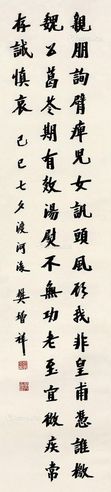 親朋詢臂痺兒女訊頭風顧我非皇甫憑誰檄
魏公葠苓期有效湯熨不無功老至宜儆疾常
存誠慎衷 己巳七夕渡河後 樊增祥